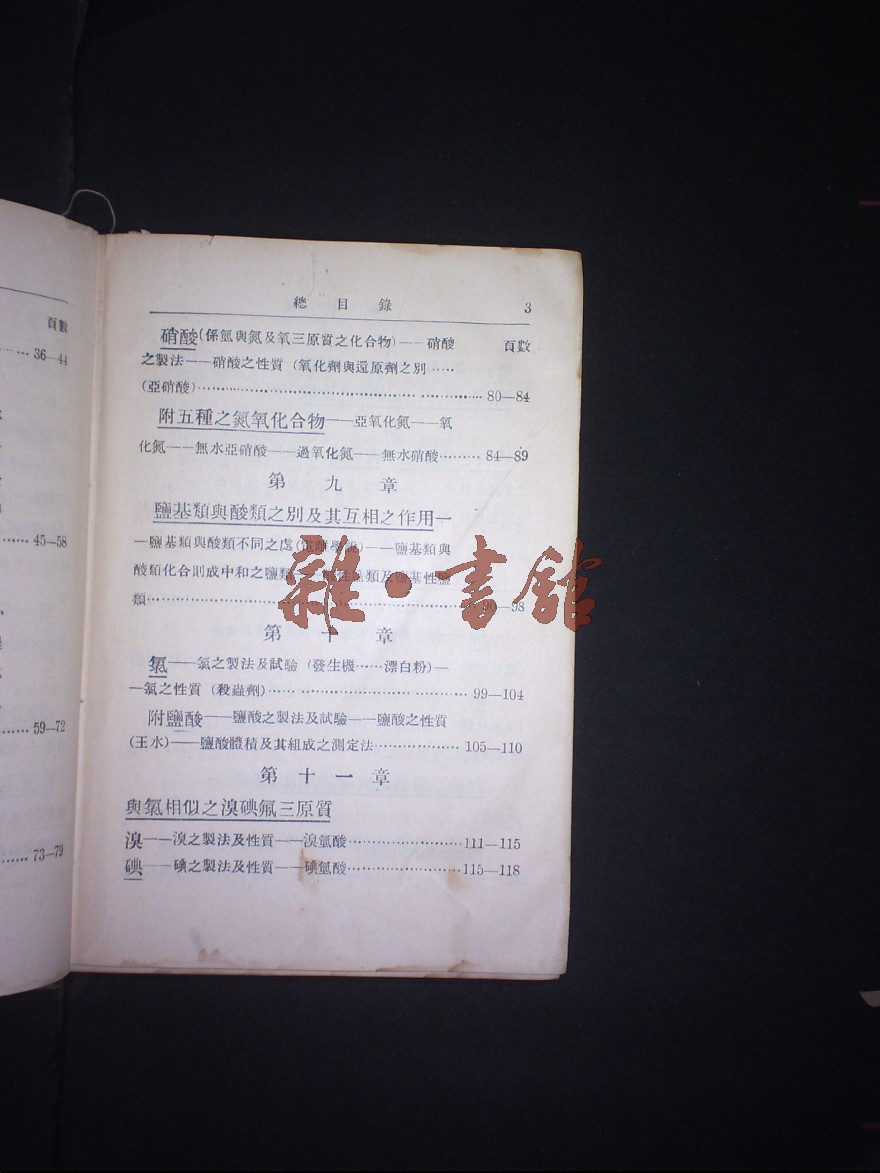 頁數
36—44
45—58
59—72
73—79
總目錄 3
硝酸(係氫與氮及氧三原質之化合物)——硝酸 頁數
之製法——硝酸之性質 (氧化劑與還原劑之別……
(亞硝酸)…………80—84
附五種之氮氧化合物——亞氧化氮——氧
化氮——無水亞硝酸——過氧化氮——無水硝酸………84—89
第九章
鹽基類與酸類之別及其互相之作用—
—鹽基類與酸類不同之處(電離學說)——鹽基類與
酸類化合則成中和之鹽類——酸性鹽類及鹽基性鹽
類…………90—98
第十章
氯——氯之製法及試驗 (發生機……漂白粉)—
—氯之性質 (殺蟲劑)…………99—104
附鹽酸——鹽酸之製法及試驗——鹽酸之性質
(王水)——鹽酸體積及其組成之測定法…………105—110
第十一章
與氯相似之溴碘氟三原質
溴——溴之製法及性質——溴氫酸…………111—115
碘——碘之製法及性質——碘氫酸…………115—118
雜·書館